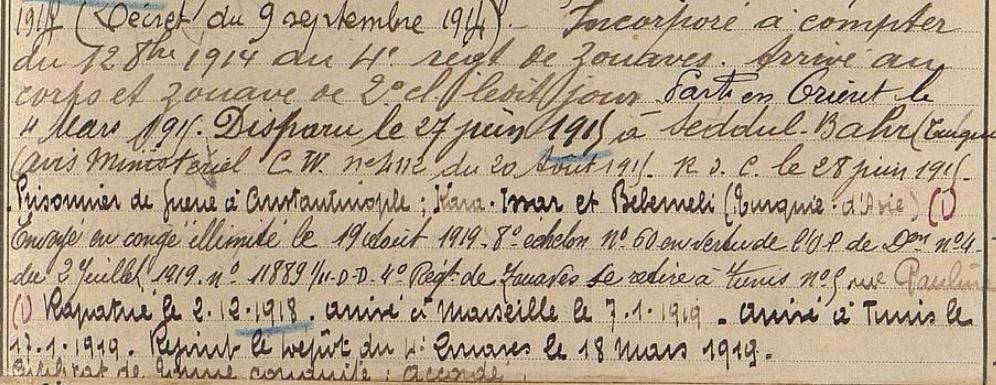 1914 (Décret du 9 septembre 1914). Incorporé à compter
du 12 8bre 1914 au 4e régt de zouaves. Arrivé au
corps et zouave de 2e cl ledit jour Parti en Orient le
4 Mars 1915. Disparu le 27 juin 1915 à Seddul-Bahr (Turquie
(avis Ministériel C.W. n° 4112 du 20 Août 1915. R.d.C. le 28 juin 1915.
Prisonnier de guerre à Constantinople ; Kara-Issar et Belemeli (Turquie-d'Asie) (1)
Envoyé en congé illimité le 19 Août 1919. 8e échelon n° 60 en vertu de l'O.P. de Don n° 4
du 2 Juillet 1919. n° 11889 D.D. 4e Régt de Zouaves se retire à Tunis n° 5 rue
(1) Rapatrié le 2.12.1918. arrivé à Marseille le 7.1.1919 - arrivé à Tunis le
17.1.1919. Rejoint le Dépôt du 4e Zouaves le 18 Mars 1919.
Certificat de bonne conduite : accordé.